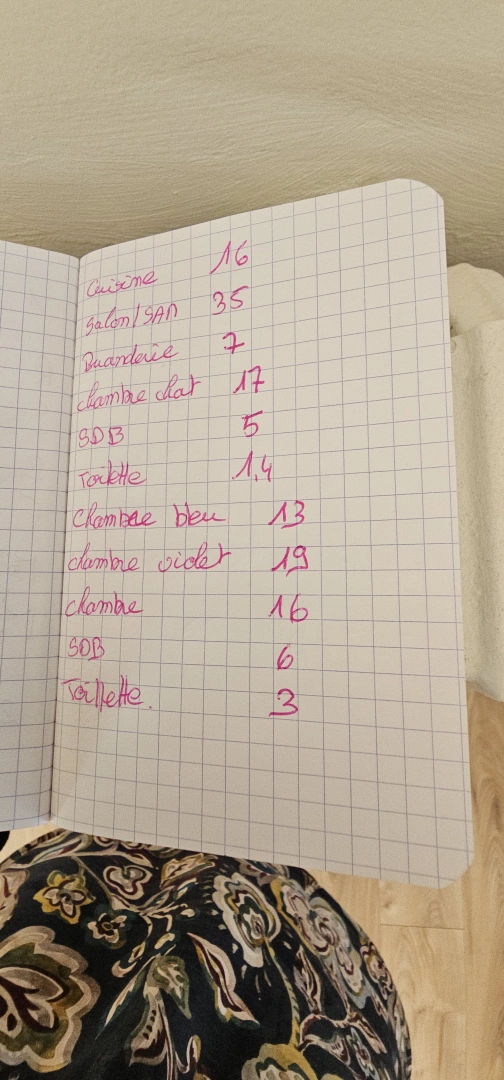 Cuisine 16
Salon/SAM 35
Buanderie 7
chambre chat 17
SDB 5
Toilette 1,4
Chambre bleu 13
chambre violet 19
chambre 16
SDB 6
Toillette. 3